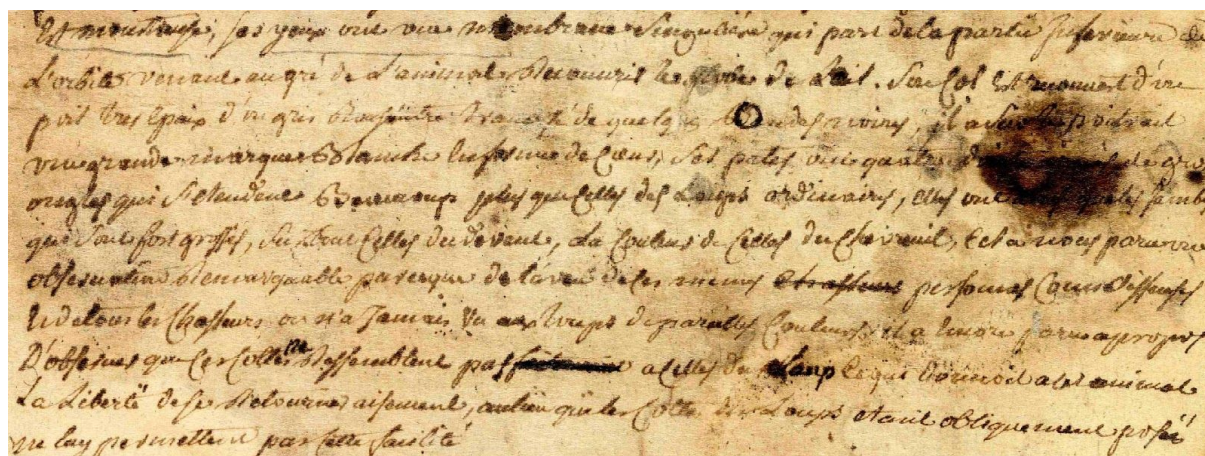 Est monstrueuse, ses yeux ont une membrane singulière qui part de la partie inferieure de
L'orbite venant au gré de L'animal Recouvrir le globe de L'œil. Son Col Est recouvert d'un
poil tres Epaix d'un gris Roussatre traversé de quelques bandes noires, il a sur le poitrail
une grande marque Blanche En forme de Cœur, Ses pates ont quatre de gros
ongles qui s'etendent Beaucoup plus que Celles des Loups ordinaires, elles ont les jambes
qui sont fort grosses, surtout Celles du devant, La Couleur de Celles du Chevreuil, Cela nous paru une
observation Remarquable parceque de l'aveu de ces memes chasseurs personnes Connoisseuses
Et de tous les Chasseurs on n'a Jamais Vu aux Loups de pareilles Couleurs, il a Encore paru apropos
D'observer que Ces Cottes ne Ressemblent pas a Celles du Loup Ce qui donnoit a cet animal
La Liberté de se Retourner aisement, au lieu que les Cottes des Loups etant obliquement poséës
ne luy permettent pas Cette facilité